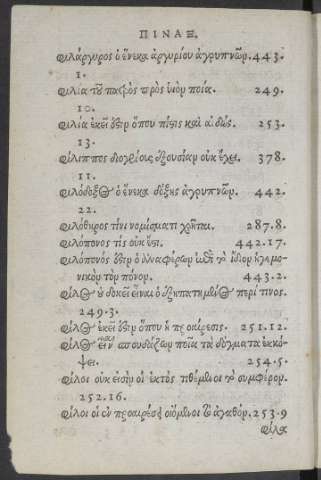 ΠΙΝΑΞ.
Φιλάργυρος ὁ ἕνεκα ἀργυρίου ἀγρυπνῶν. 443.
1.
Φιλία τοῦ πατρὸς πρὸς υἱὸν ποία. 249.
10.
Φιλία ἐκεῖ ὅπου πίστις καὶ αἰδώς. 253.
13.
Φίλιππος ἐξουσίαν οὐκ ἔχει. 378.
11.
Φιλόδοξος ὁ ἕνεκα δόξης ἀγρυπνῶν. 442.
22.
Φιλόθηρος τίνι νομίσματι χρῆται. 287.8.
Φιλόπονος τίς οὐκ ἔστι. 442.17.
Φιλόπονός ὁ ἀναφέρων ἐπὶ τὸ ἴδιον ἡγεμο-
νικὸν τὸν πόνον. 443.2.
Φίλος δοκεῖ εἶναι ὁ περί τινος.
249.3.
Φίλος ἐκεῖ ὅπου ἡ προαίρεσις. 251.12.
Φίλος εἶναι σπουδάζων ποῖα τὰ δόγματα ἐκκό-
ψει. 254.5.
Φίλοι οὐκ εἰσὶν οἱ ἐκτὸς τιθέμενοι τὸ συμφέρον.
252.16.
Φίλοι οἱ ἐν προαιρέσει οἰόμενοι τὸ ἀγαθόν. 253.9
Φίλα